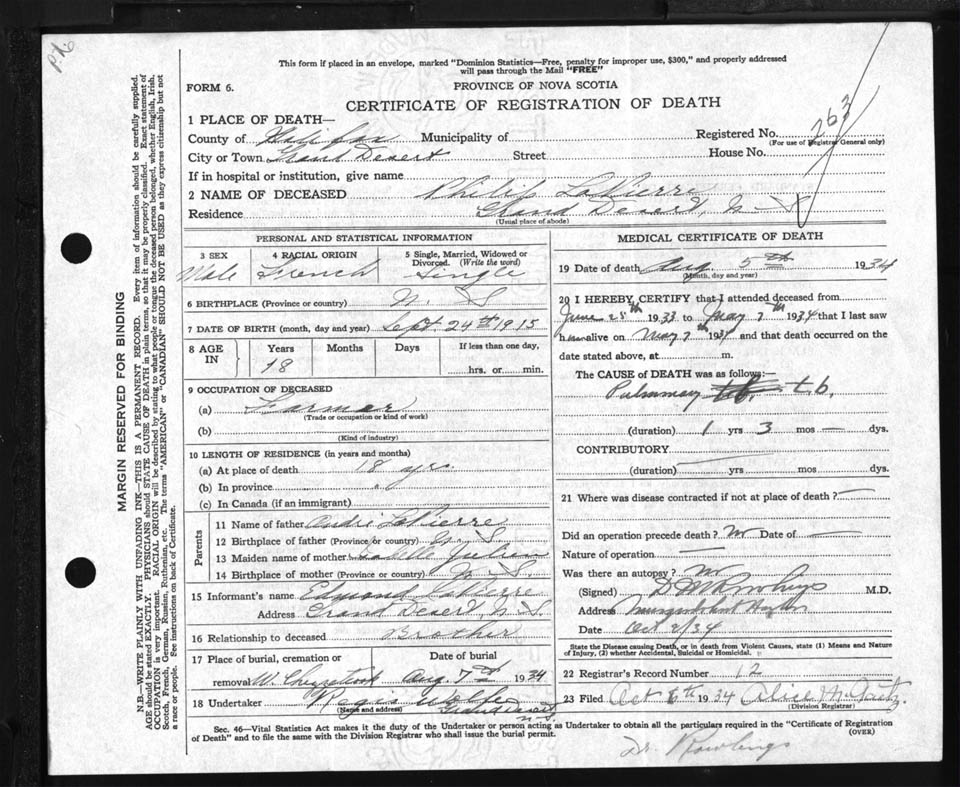 P.K.
This form if placed in an envelope, marked "Dominion Statistics—Free, penalty for improper use, $300," and properly addressed
will pass through the Mail "FREE"
FORM 6.
PROVINCE OF NOVA SCOTIA
CERTIFICATE OF REGISTRATION OF DEATH
1 PLACE OF DEATH—
County of Halifax Municipality of Registered No. 263
(For use of Registrar General only)
City or Town Grand Desert Street House No.
If in hospital or institution, give name
2 NAME OF DECEASED Philip LaPierre
Residence Grand Desert, N-S
(Usual place of abode)
MARGIN RESERVED FOR BINDING
N.B.—WRITE PLAINLY WITH UNFADING INK—THIS IS A PERMANENT RECORD. Every item of information should be carefully supplied.
AGE should be stated EXACTLY. PHYSICIANS should STATE CAUSE OF DEATH in plain terms, so that it may be properly classified. Exact statement of
OCCUPATION is very important. RACIAL ORIGIN will be described by stating to what people or tongue the deceased person belonged, whether English, Irish,
Scotch, French, German, Russian, Ruthenian, etc. The terms "AMERICAN" or "CANADIAN" SHOULD NOT BE USED as they express citizenship but not
a race or people. See instructions on back of Certificate.
PERSONAL AND STATISTICAL INFORMATION
3 SEX 4 RACIAL ORIGIN 5 Single, Married, Widowed or
Divorced. (Write the word)
Male French Single
6 BIRTHPLACE (Province or country) N. S
7 DATE OF BIRTH (month, day and year) Sept 24th 1915
8 AGE IN Years Months Days If less than one day,
18 hrs. or min.
9 OCCUPATION OF DECEASED
(a) Farmer
(Trade or occupation or kind of work)
(b)
(Kind of industry)
10 LENGTH OF RESIDENCE (in years and months)
(a) At place of death 18 yrs.
(b) In province "
(c) In Canada (if an immigrant)
Parents
11 Name of father André LaPierre
12 Birthplace of father (Province or country) N. S
13 Maiden name of mother Julien
14 Birthplace of mother (Province or country) N. S.
15 Informant's name Edmond LaPierre
Address Grand Desert, N-S
16 Relationship to deceased Brother
17 Place of burial, cremation or Date of burial
removal W. Chezzetcook Aug 7th 1934
18 Undertaker Regis Wolfe Grand Desert
(Name and address) N.S.
MEDICAL CERTIFICATE OF DEATH
19 Date of death Aug 5th 1934
(Month, day and year)
20 I HEREBY CERTIFY that I attended deceased from
June 28th 1933 to May 7th 1934 that I last saw
him alive on May 7th 1934 and that death occurred on the
date stated above, at m.
The CAUSE of DEATH was as follows:—
Pulmonary t.b. t.b.
(duration) 1 yrs 3 mos — dys.
CONTRIBUTORY
(duration) yrs mos dys.
21 Where was disease contracted if not at place of death? —
Did an operation precede death? no Date of —
Nature of operation —
Was there an autopsy? no
(Signed) D M Rawlings M.D.
Address Musquodoboit Harbor
Date Oct 2/34
State the Disease causing Death, or in death from Violent Causes, state (1) Means and Nature
of Injury, (2) whether Accidental, Suicidal or Homicidal.
22 Registrar's Record Number 12
23 Filed Oct 6th 1934 Alice M.
(Division Registrar)
Sec. 46—Vital Statistics Act makes it the duty of the Undertaker or person acting as Undertaker to obtain all the particulars required in the "Certificate of Registration
of Death" and to file the same with the Division Registrar who shall issue the burial permit. (OVER)
Dr. Rowlings